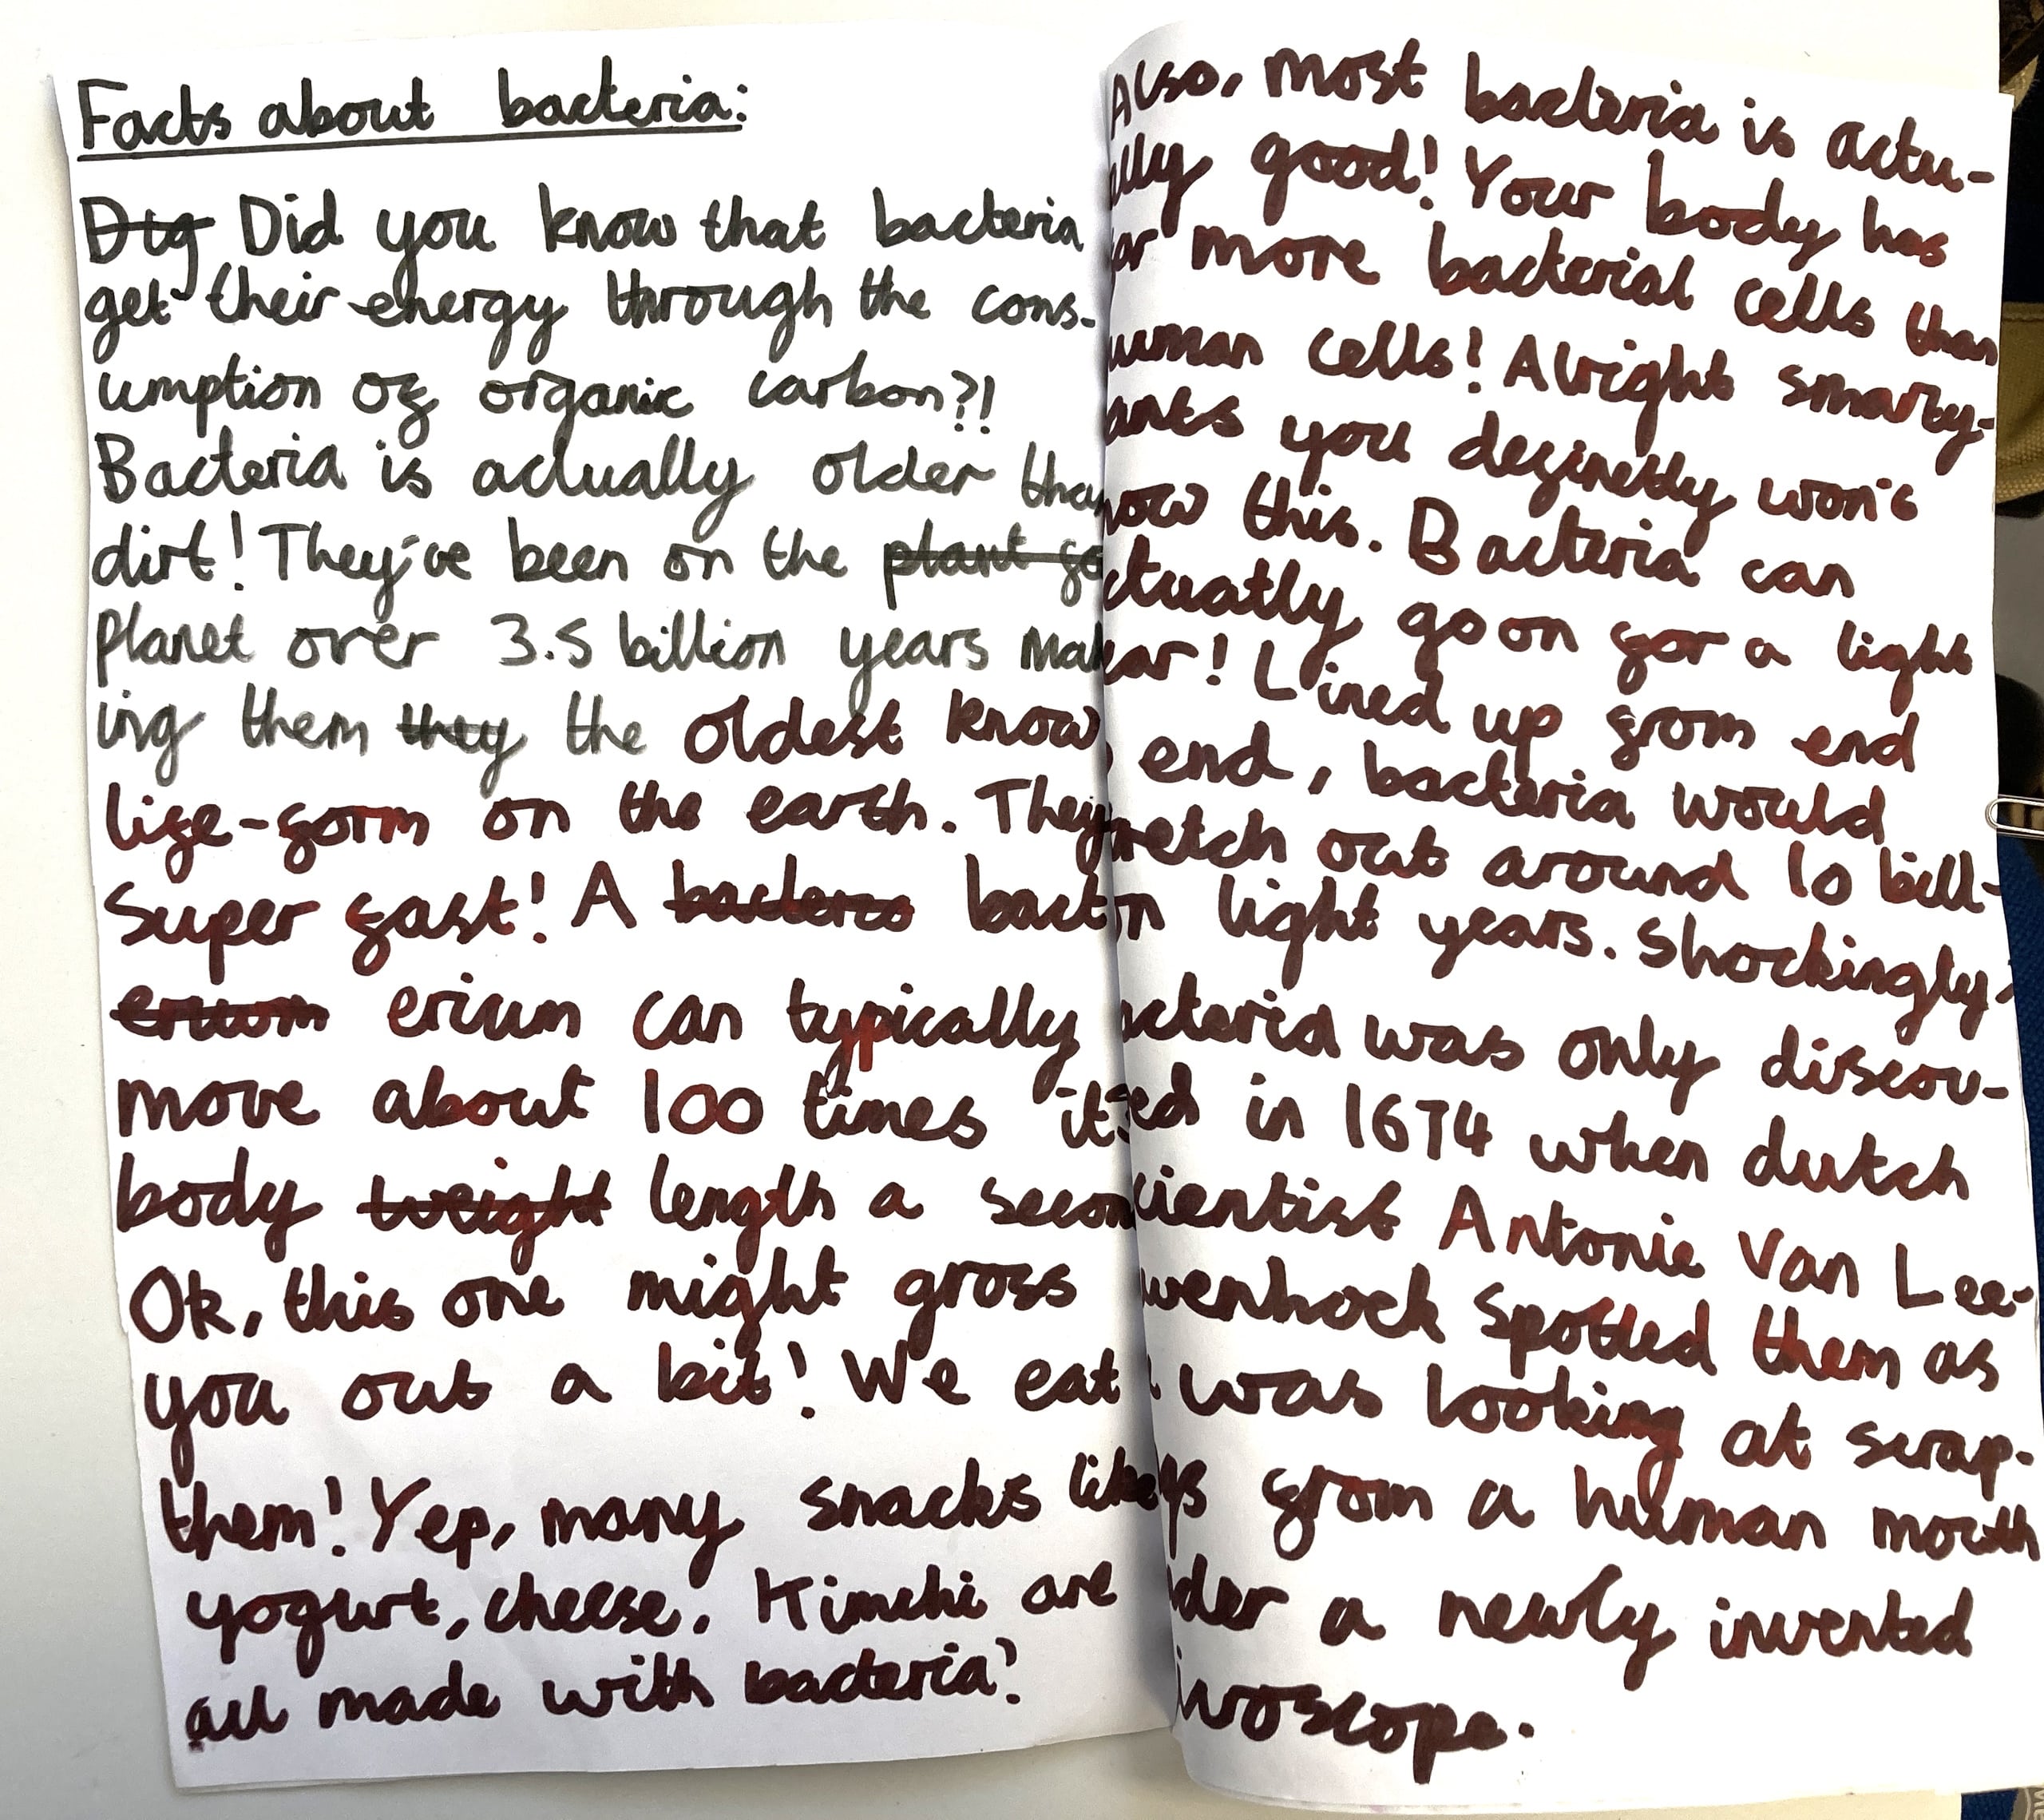 Facts about bacteria:
Dig Did you know that bacteria
get their energy through the cons-
umption of organic carbon?!
Bacteria is actually older than
dirt! They've been on the plant fo
planet over 3.5 billion years mak
ing them they the oldest know
life-form on the earth. They
Super fast! A bacterco bact
ericom ericum can typically
move about 100 times its
body weight length a secon
Ok, this one might gross
you out a bit! We eat
them! Yep, many snacks like
yogurt, cheese, Kimchi are
all made with bacteria!
Also, most bacteria is actu-
ally good! Your body has
far more bacterial cells than
uman cells! Alright smarty-
ants you definetly won't
now this. Bacteria can
ctuatly go on for a light
ear! Lined up from end
end, bacteria would
retch out around 10 bill-
on light years. Shockingly,
acteria was only discov-
ed in 1674 when dutch
cientist Antonie Van Lee-
wenhock Spotted them as
was looking at scrap-
gs from a human mouth
der a newly invented
roscope.